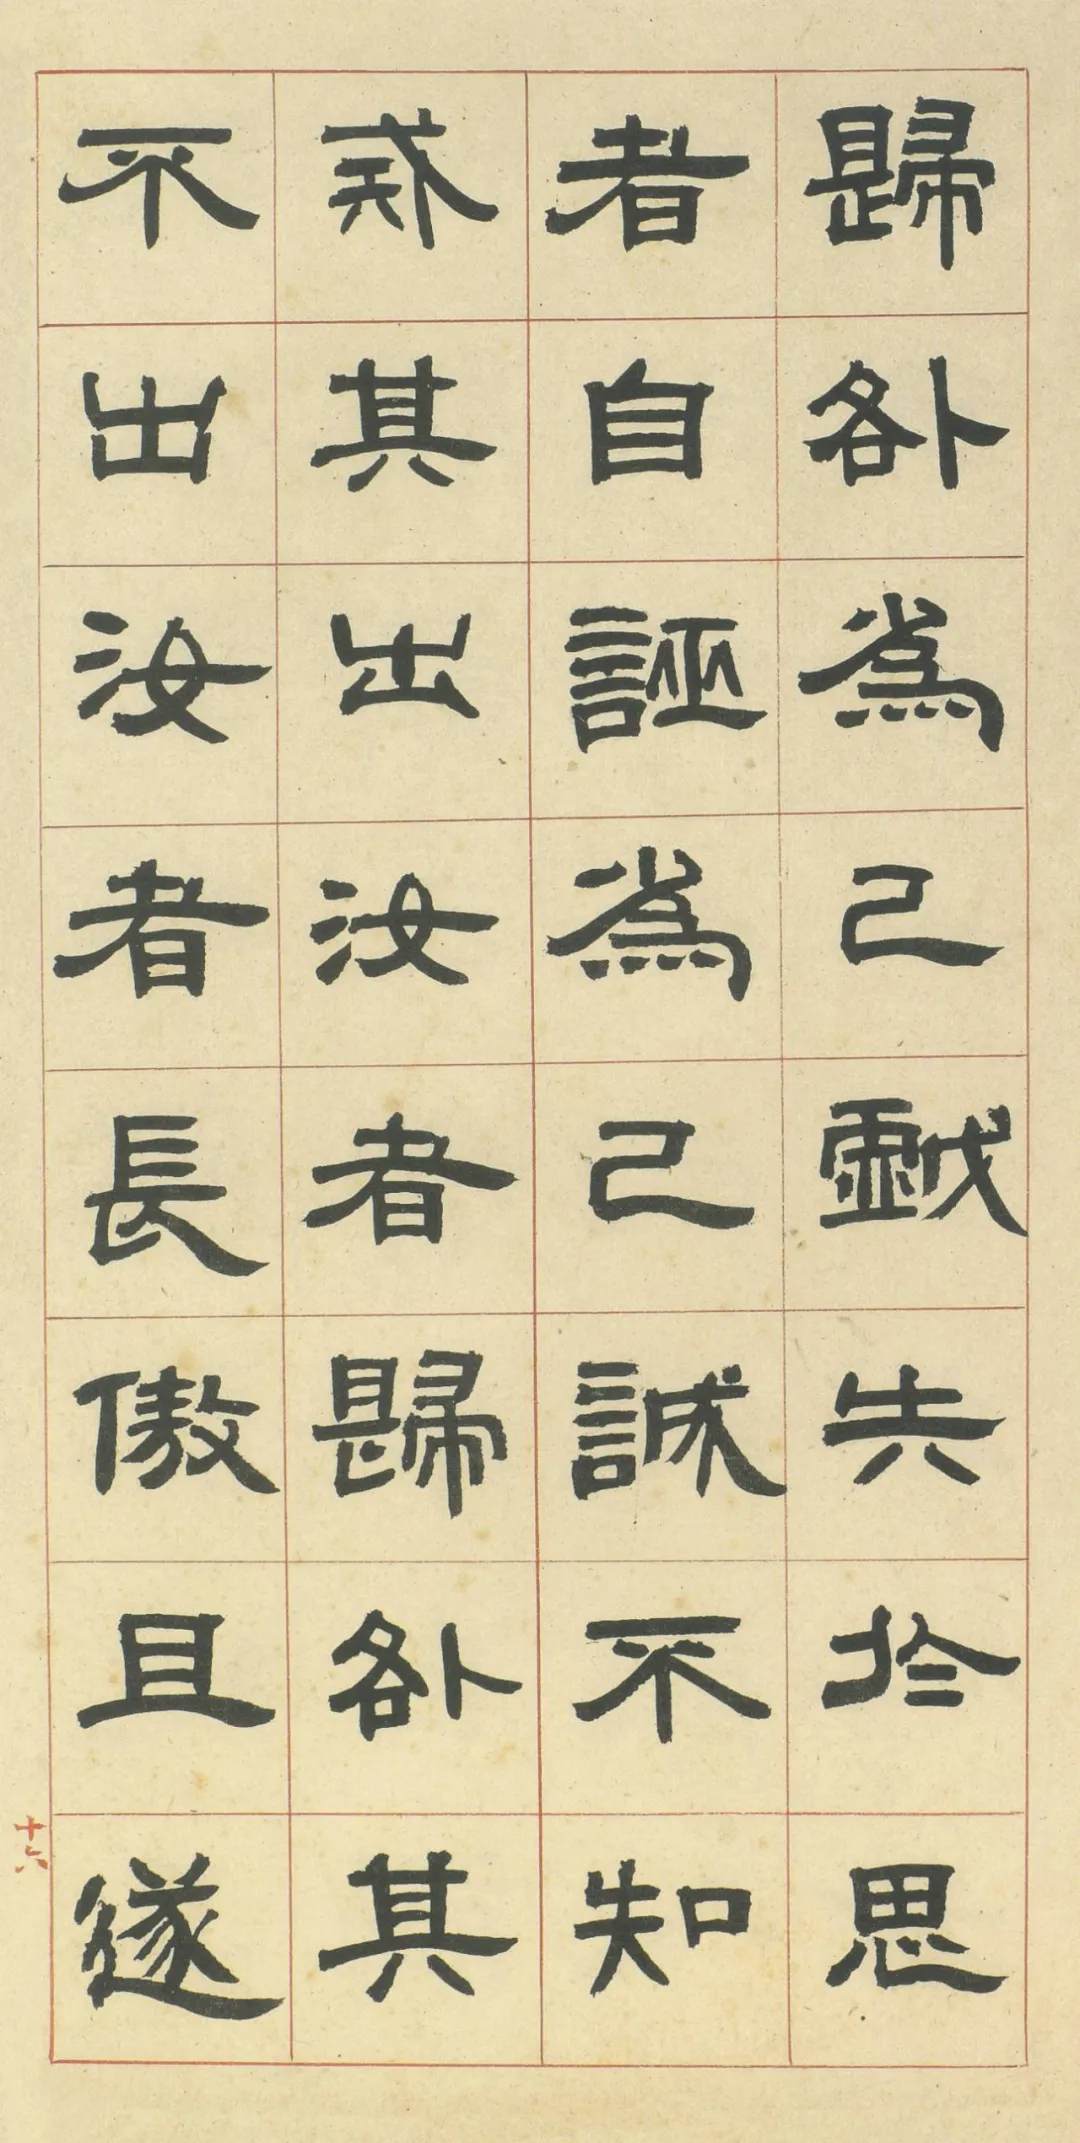 歸咎爲己戲失於思
者自誣爲己誠不知
戒其出汝者歸咎其
不出汝者長傲且遂
十六